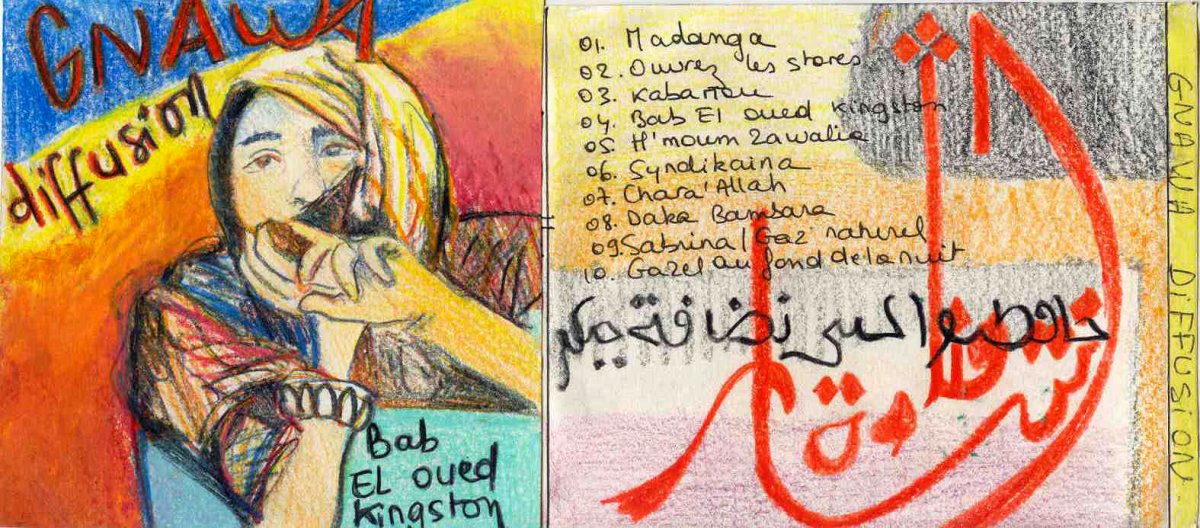 GNAWA
diffusion
Bab
EL oued
Kingston
01. Madanga
02. Ouvrez les stores
03.
04. Bab El oued Kingston
05. H'moum Zawalia
06. Syndikaina
07. Chara'Allah
08. Daka Bambara
09. Sabrina / Gaz naturel
10. Gazel au fond de la nuit
حافضوا على نضافة
GNAWA DiFFUSION.